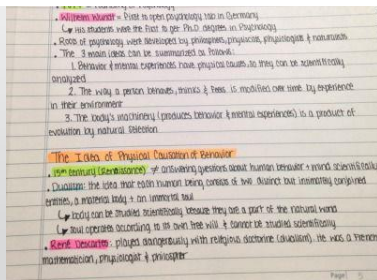 • Wilhelm Wundt = First to open psychology lab in Germany
↳ His students were the first to get Ph.D degrees in Psychology
• Roots of psychology were developed by philosophers, physicists, physiologists & naturalists
• The 3 main ideas can be summarized as follows:
1. Behavior & mental experiences have physical causes, so they can be scientifically
analyzed
2. The way a person behaves, thinks & feels is modified over time by experience
in their environment
3. The body's machinery (produces behavior & mental experiences) is a product of
evolution by natural selection
The Idea of Physical Causation of Behavior
• (Renaissance) answering questions about human behavior + mind scientifically
• Dualism: the idea that each human being consists of two distinct but intimately conjoined
entities, a material body + an immortal soul
↳ body can be studied scientifically because they are a part of the natural world
↳ soul operates according to its own free will & cannot be studied scientifically
• René Descartes: played dangerously with religious doctrine (dualism). He was a French
mathematician, physiologist & philosopher
Page